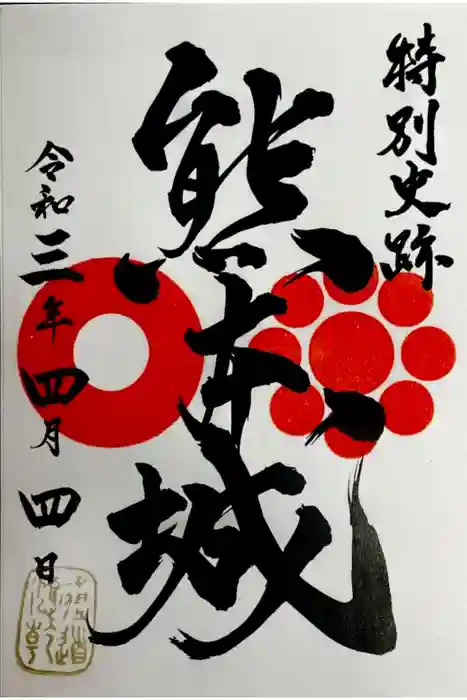 特別史跡
熊本城
令和三年四月四日